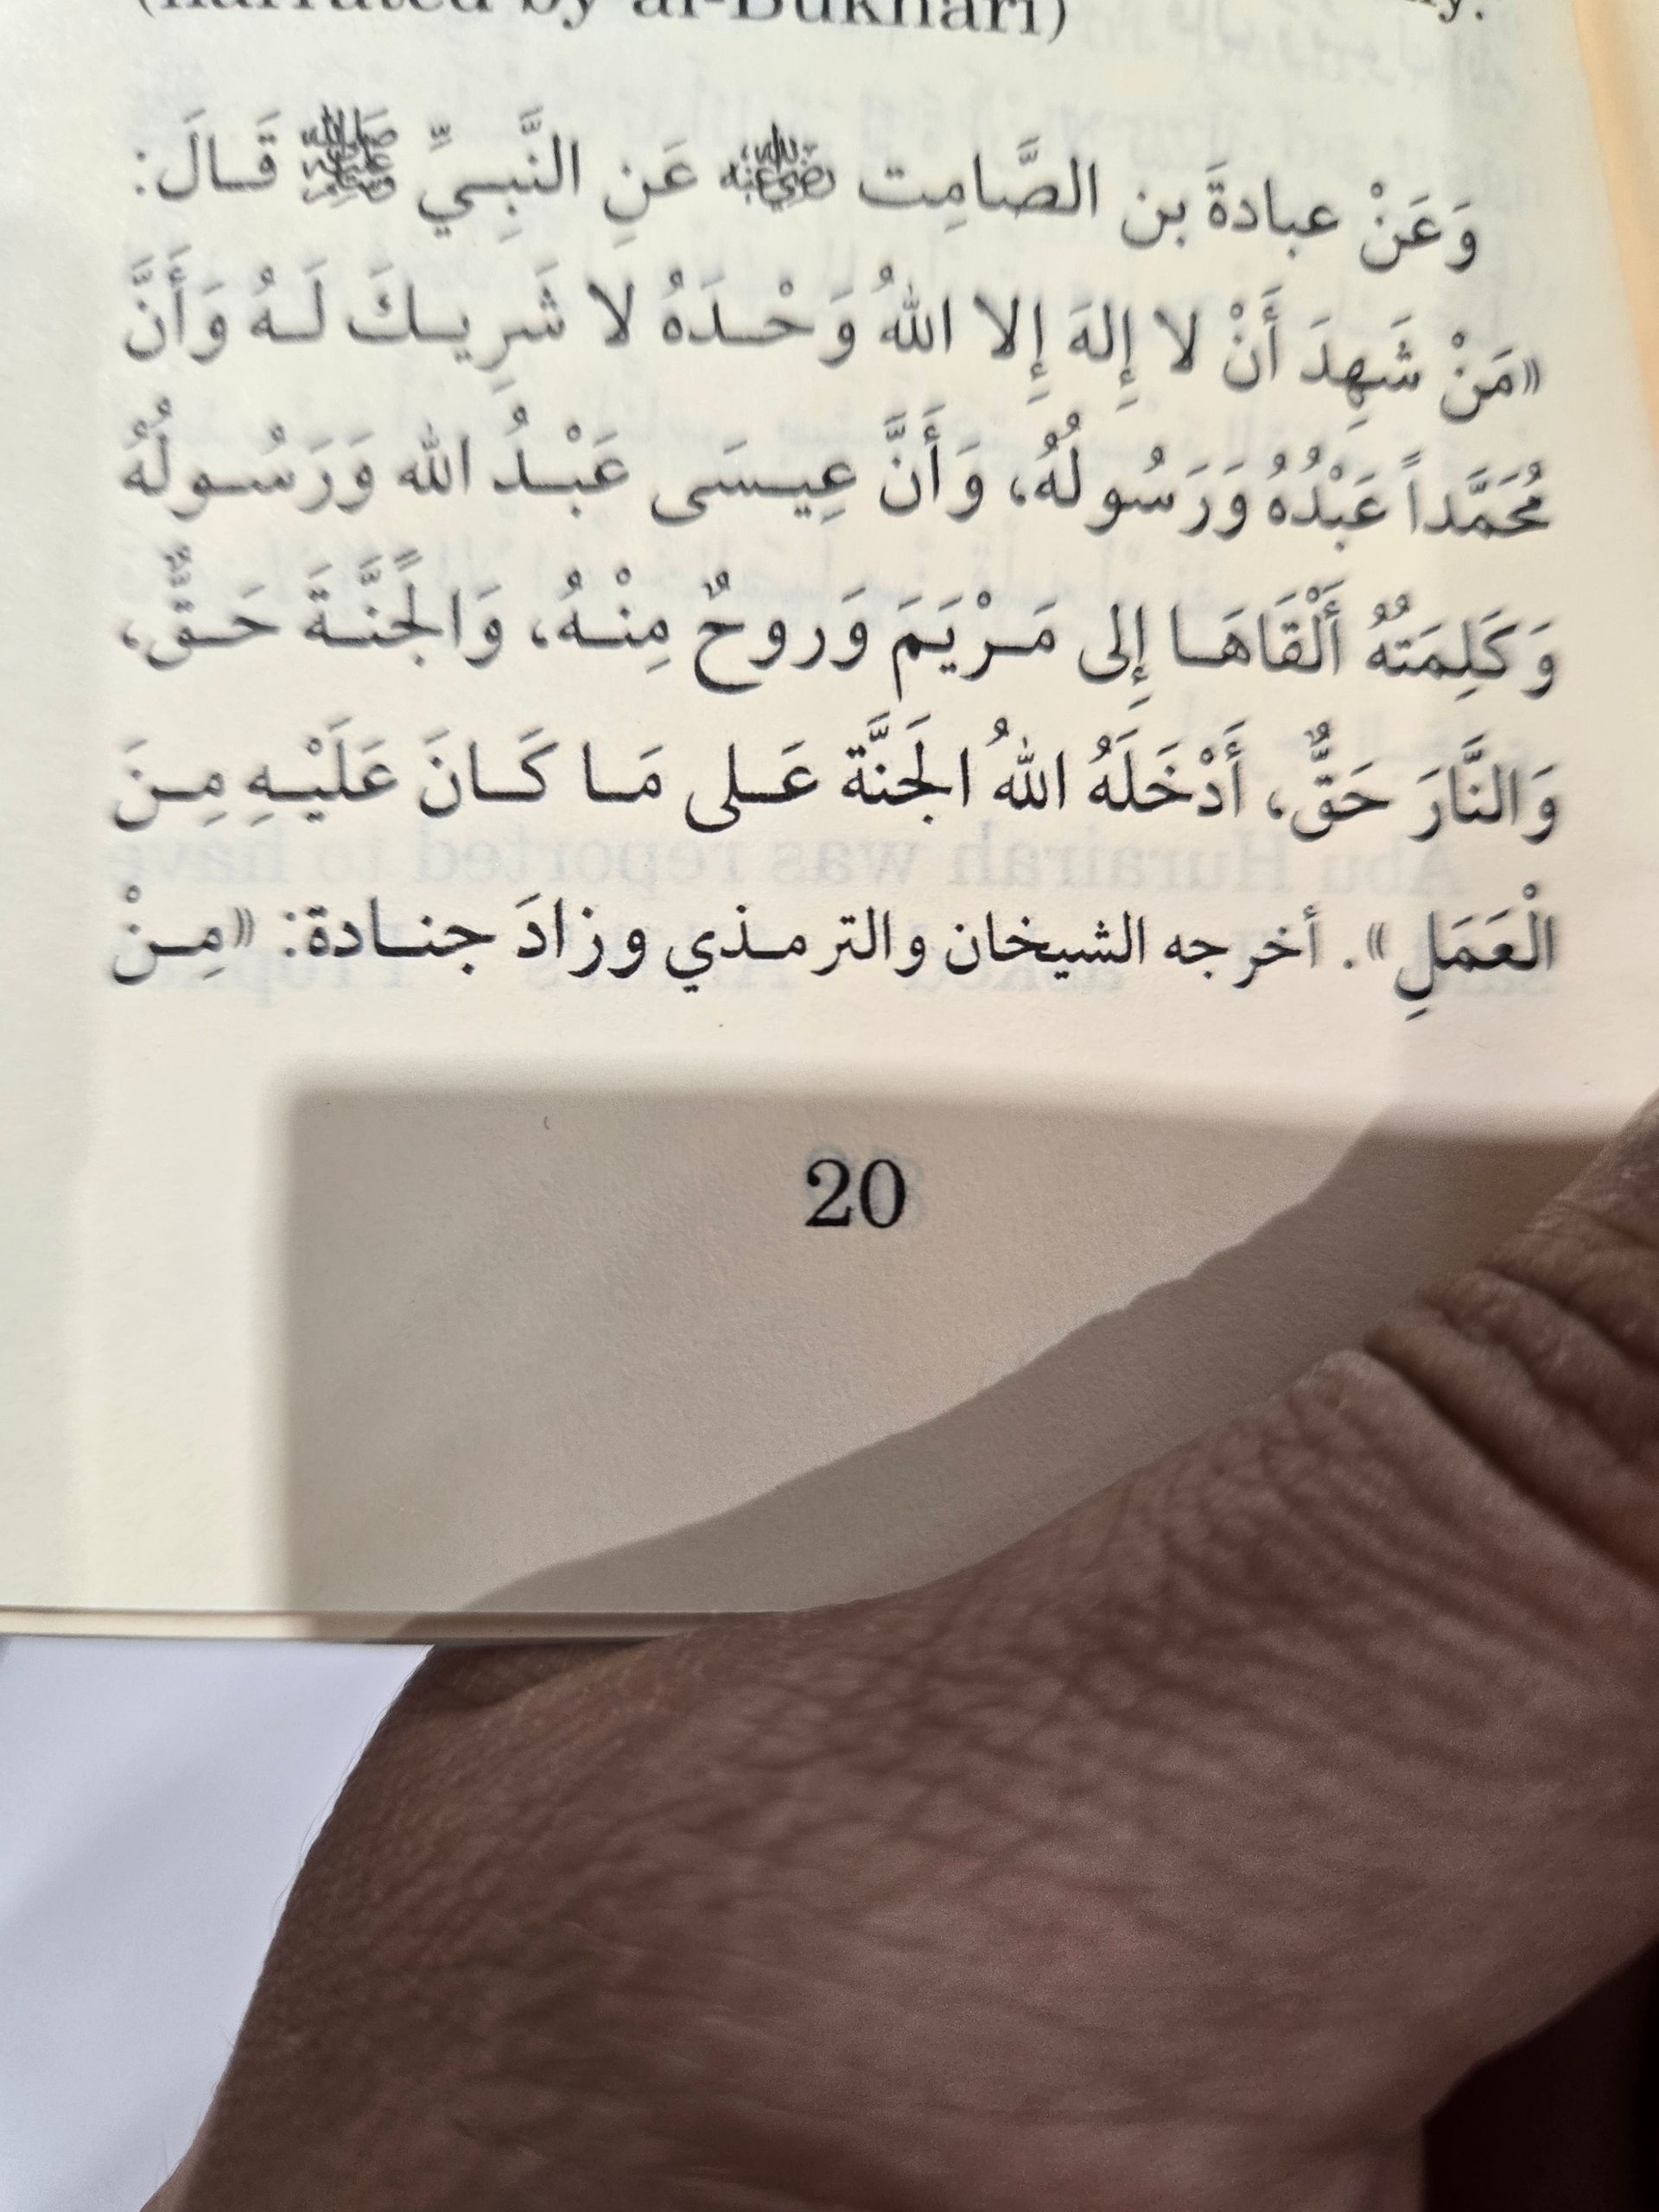 (narrated by al-Bukhari)
وَعَنْ عبادةَ بن الصَّامِت رضي الله عنه عَنِ النَّبِيِّ ﷺ قَالَ:
«مَنْ شَهِدَ أَنْ لا إِلهَ إِلا اللهُ وَحْدَهُ لا شَرِيكَ لَهُ وَأَنَّ
مُحَمَّداً عَبْدُهُ وَرَسُولُهُ، وَأَنَّ عِيسَى عَبْدُ الله وَرَسُولُهُ
وَكَلِمَتُهُ أَلْقَاهَا إِلى مَرْيَمَ وَروحٌ مِنْهُ، وَالجَنَّةَ حَقٌّ،
وَالنَّارَ حَقٌّ، أَدْخَلَهُ اللهُ الجَنَّةَ عَلى مَا كَانَ عَلَيْهِ مِنَ
الْعَمَلِ». أخرجه الشيخان والترمذي وزادَ جنادة: «مِنْ
20